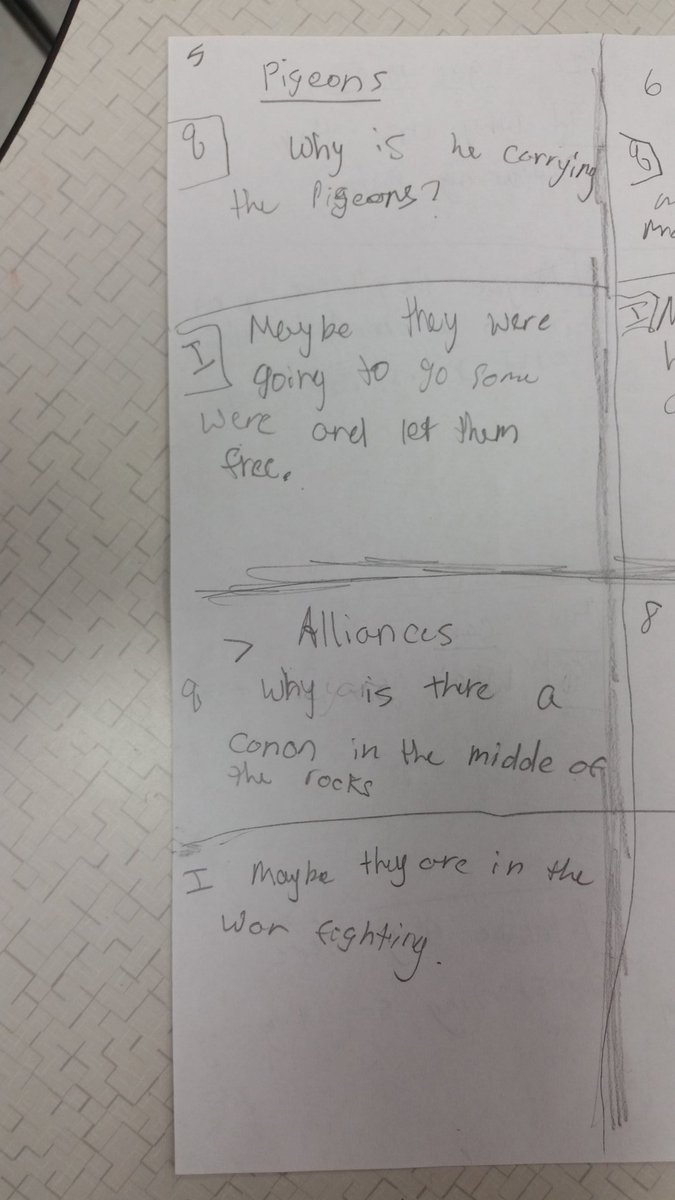 5
Pigeons
q Why is he carrying
the Pigeons?
I Maybe they were
going to go some
were and let them
free.
7 Alliances
q Why is there a
Conon in the middle of
the rocks
I Maybe they are in the
war fighting.
6
q
I
8